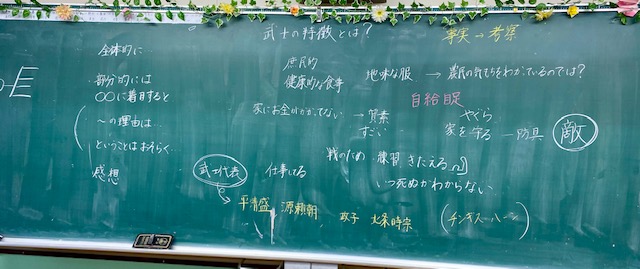 全体的に
部分的には
〇〇に着目すると
〜の理由は…
ということはおそらく…
感想
武士の特徴とは？
事実→考察
庶民的
健康的な食事
地味な服 → 農民の気もちをわかっているのでは？
自給自足
家にお金がかかってない → 質素
すごい
やぐら
家を守る ― 防具
敵
戦のため 練習 きたえる
いつ死ぬかわからない
武士代表
仕事してる
平清盛 源頼朝 政子 北条時宗 (チンギス＝ハーン)